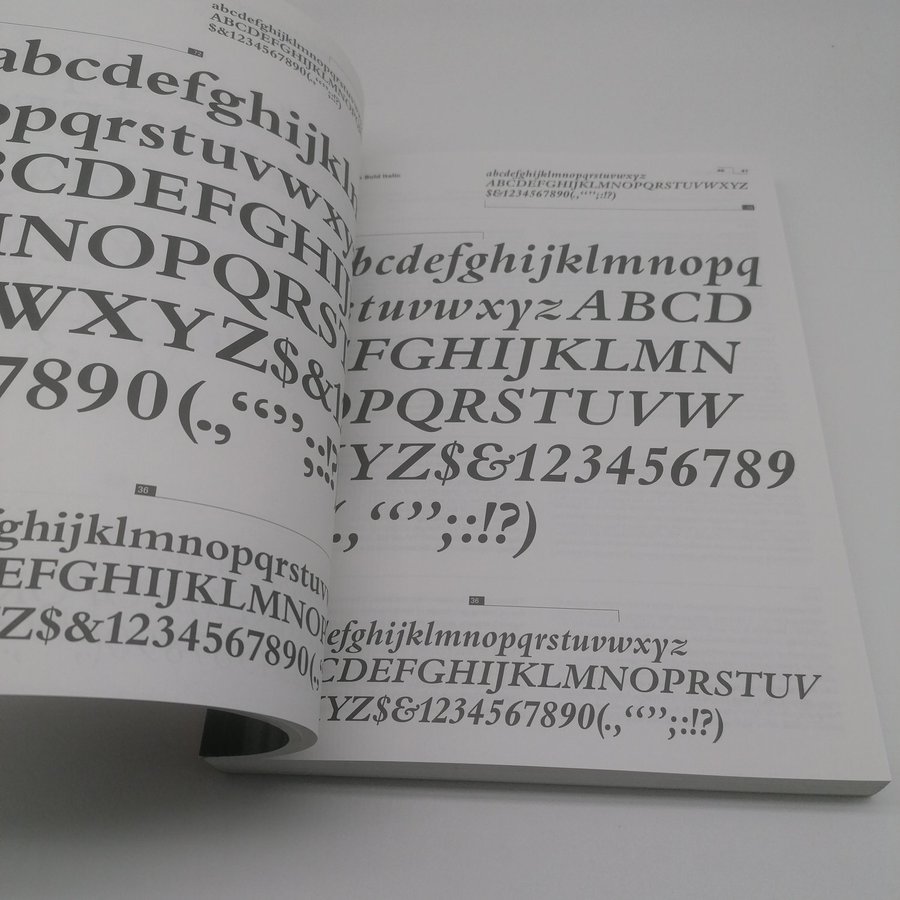 abcdefghijklmnopqrs
ABCDEFGHIJKLMNOPQ
$&1234567890(.,“”;:!?)
72
abcdefghijkl
opqrstuvwxy
BCDEFGHIJ
NOPQRST
WXYZ$&1
7890(.,“”;:!?
36
fghijklmnopqrstuv
EFGHIJKLMNOP
Z$&1234567890(.,
Bold Italic
abcdefghijklmnopqrstuvwxyz
ABCDEFGHIJKLMNOPQRSTUVWXYZ
$&1234567890(.,“”;:!?)
bcdefghijklmnopq
stuvwxyzABCD
FGHIJKLMN
OPQRSTUVW
YZ$&123456789
(.,“”;:!?)
36
efghijklmnopqrstuvwxyz
CDEFGHIJKLMNOPRSTUV
XYZ$&1234567890(.,“”;:!?)